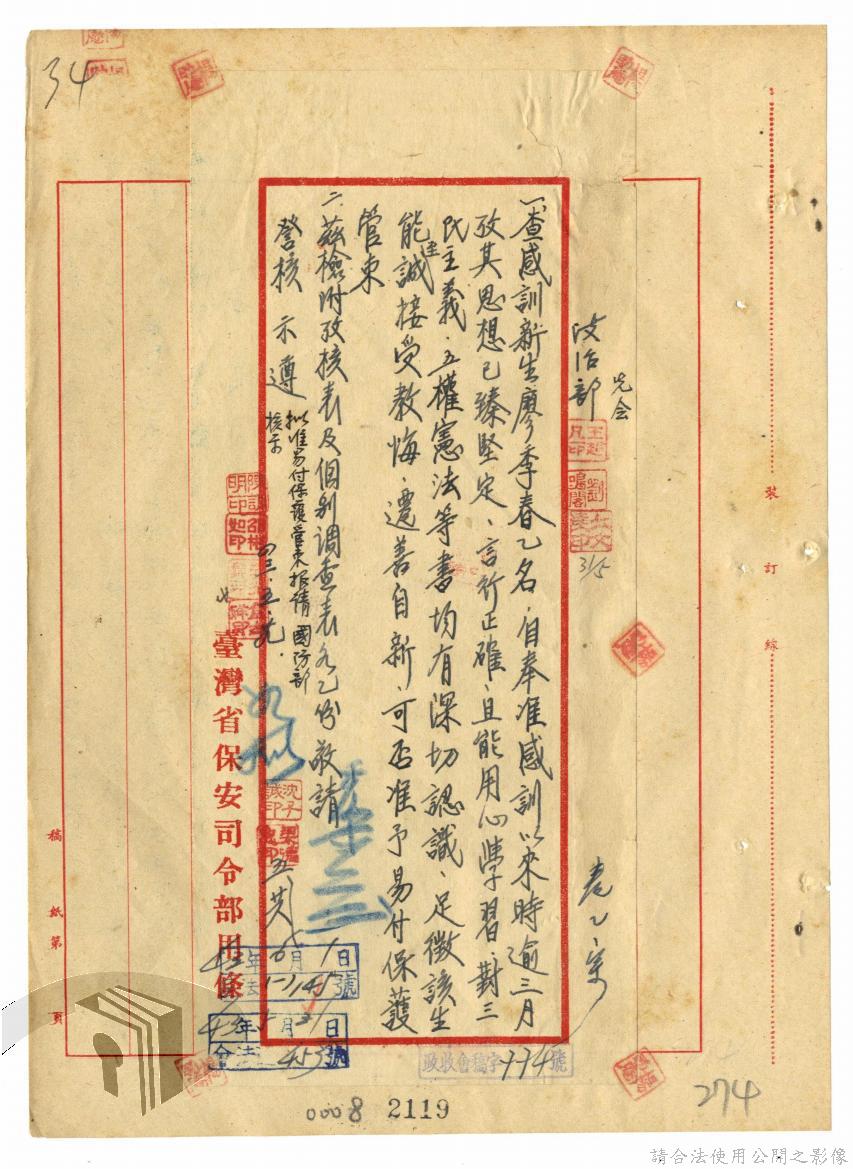 34
裝訂線
政治部
先会
一、查感訓新生廖季春乙名，自奉准感訓以來時逾三月
攷其思想已臻堅定、言行正確，且能用心學習，對三
民主義、五權憲法等書均有深切認識、足徵該生
能誠接受教悔、遷善自新，可否准予易付保護
管束
二、茲檢附攷核表及個別調查表各乙份敬請
詧核示遵
擬准易付保護管束報請國防部
核示
四三、五、
臺灣省保安司令部用條
稿紙第頁
43年6月1日
43年5月31日
453號
政收會稿字114號
31/5
0008 2119
274
請合法使用公開之影像